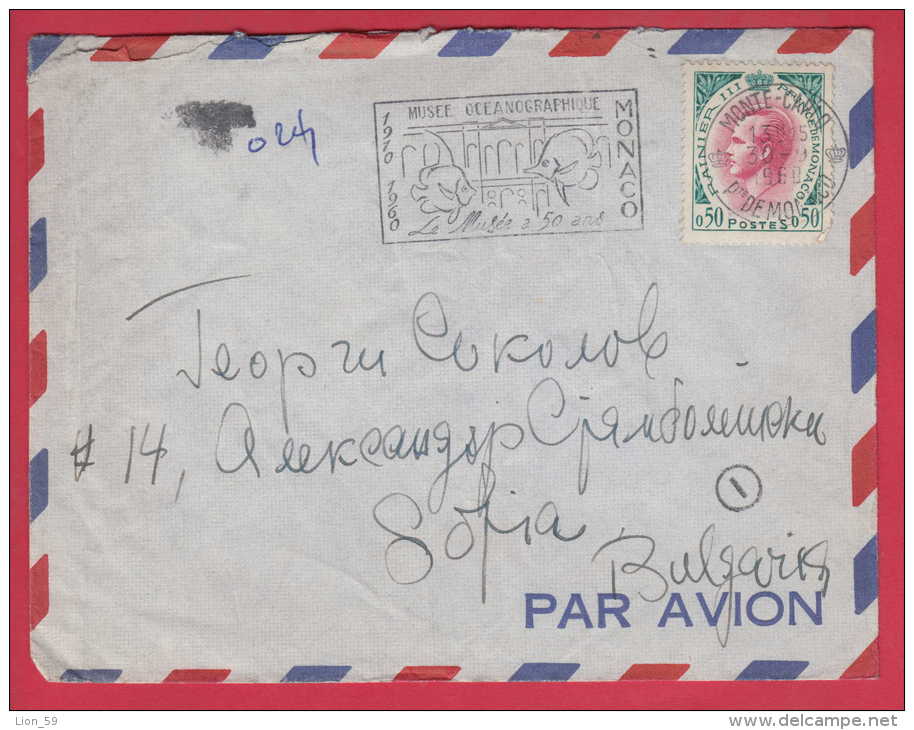 MUSEE OCEANOGRAPHIQUE
MONACO
1910 1960
Le Musée a 50 ans
RAINIER III PRINCE DE MONACO
0,50 POSTES 0,50
MONTE-CARLO
Pté DE MONACO
Георги Соколов
# 14, Александър Стамболийски
1
Sofia
Bulgaria
PAR AVION
Lion_59
www.delcampe.net